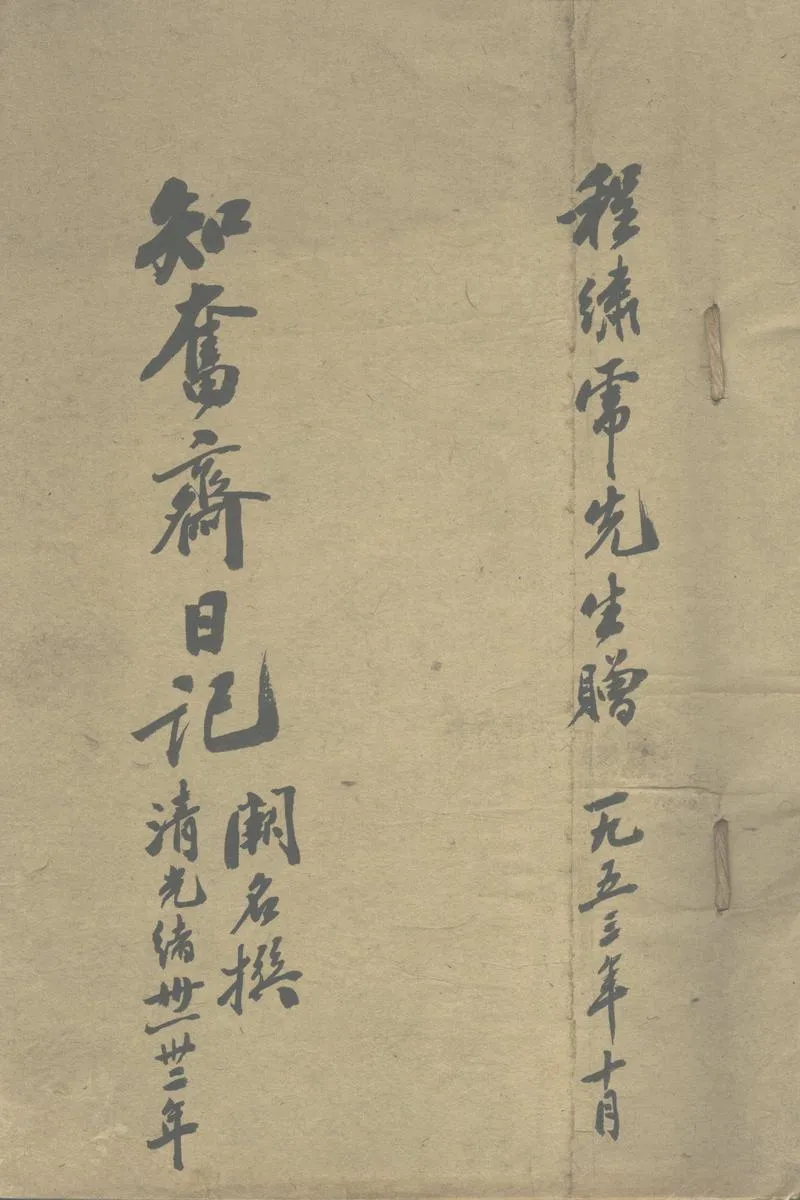 程绣帘先生贈
一九五三年十月
知奮齋日记
闕名撰
清光绪卅一卅二年